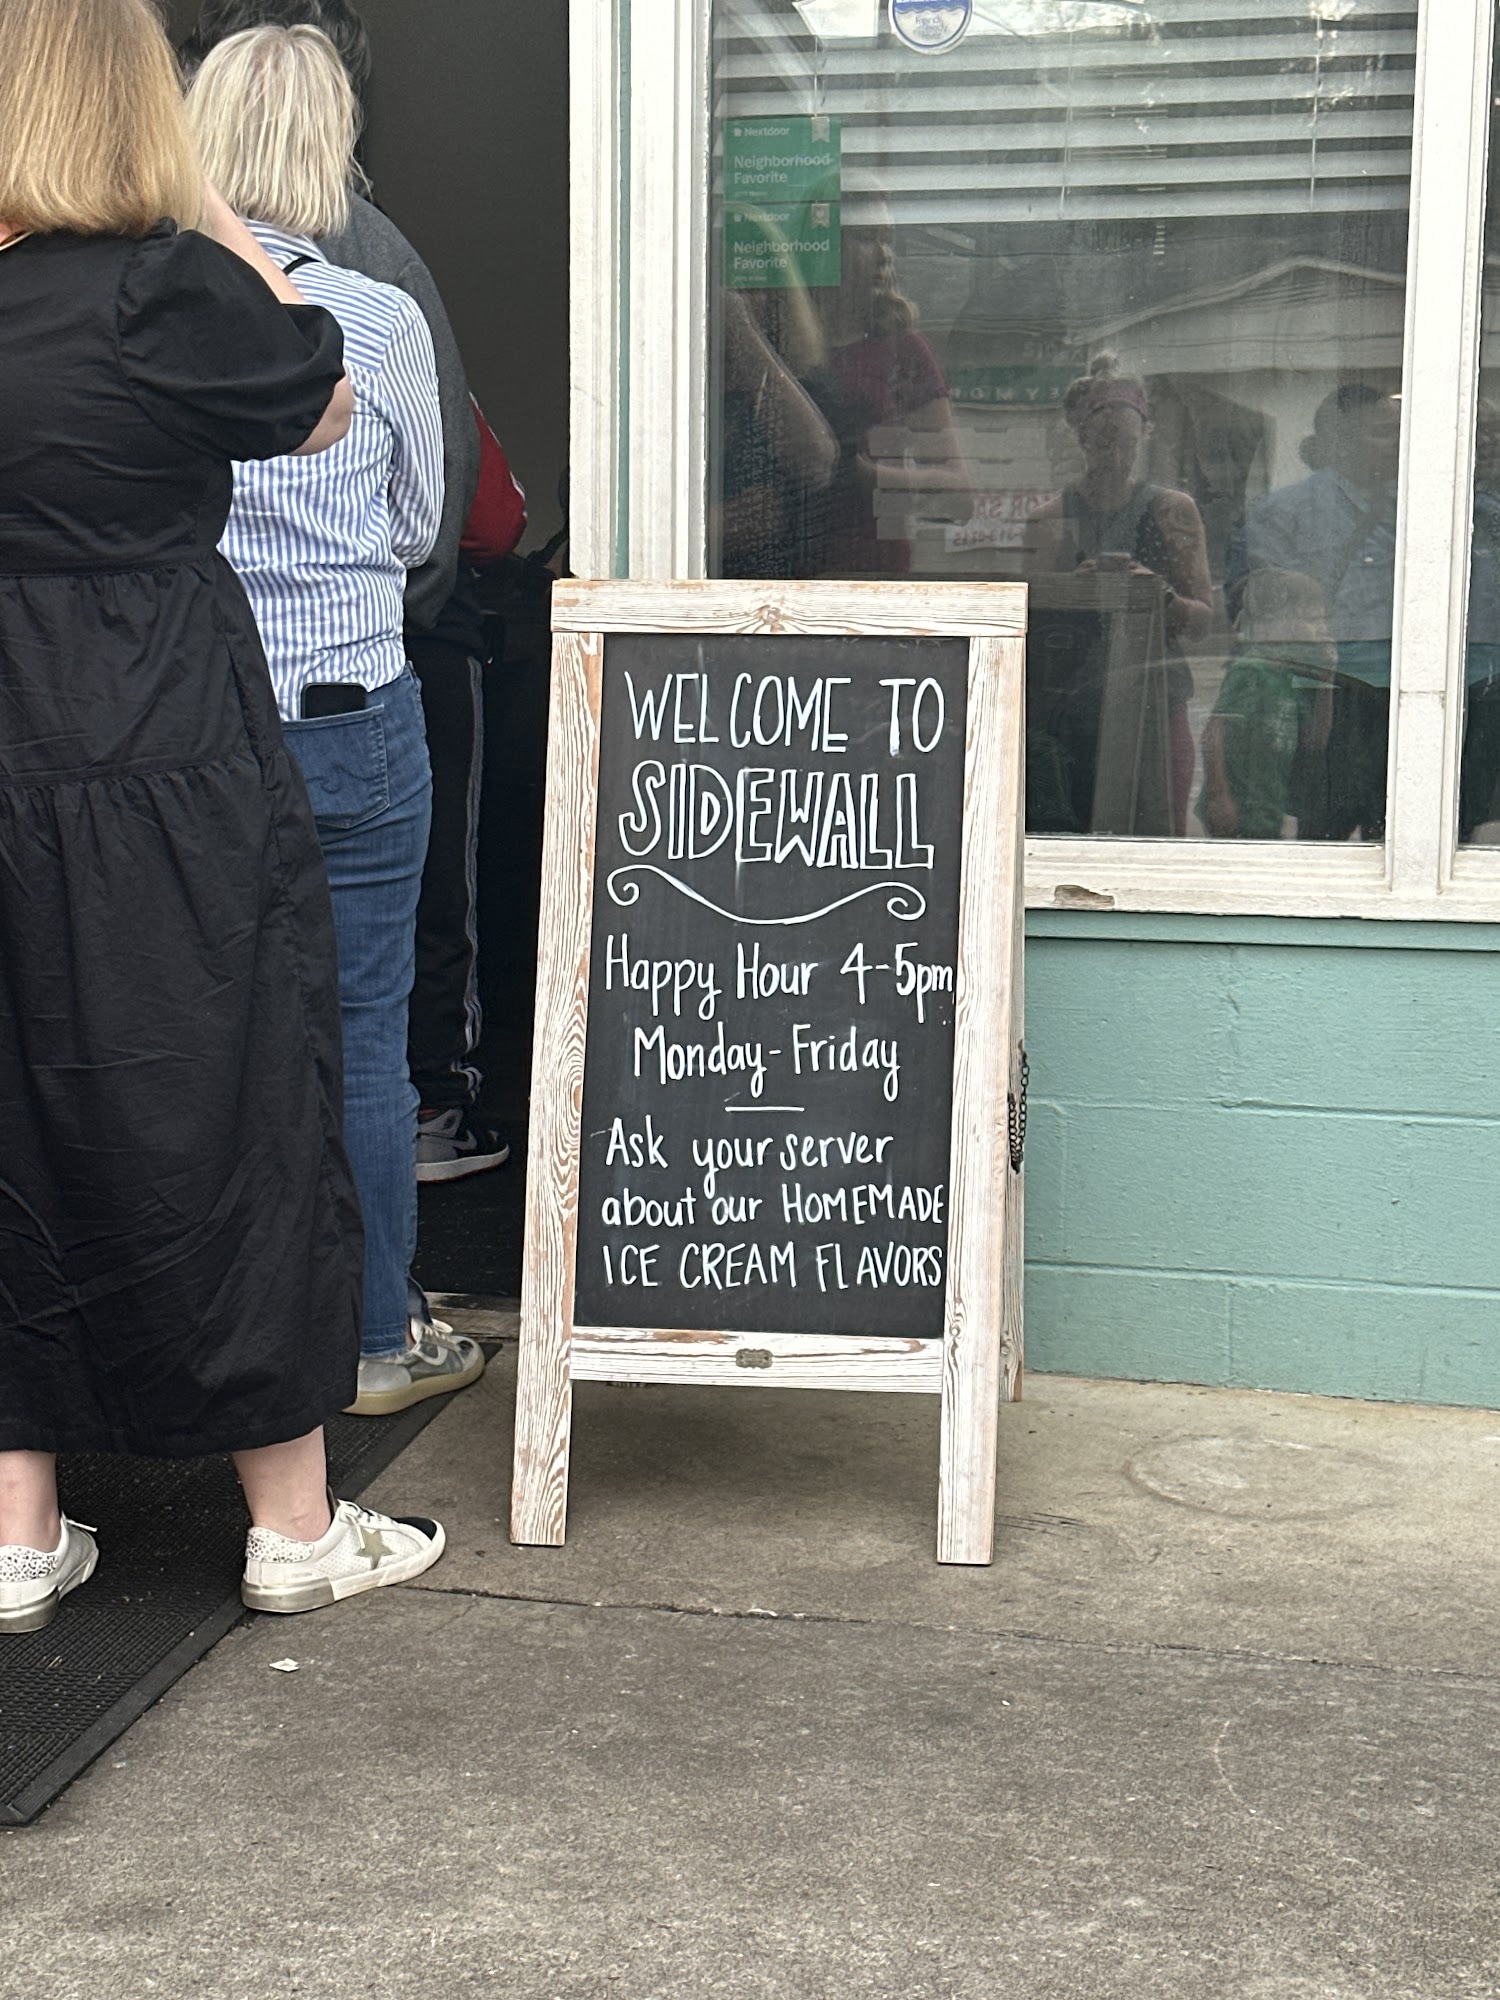 Nextdoor
Neighborhood
Favorite
Nextdoor
Neighborhood
Favorite
WELCOME TO
SIDEWALL
Happy Hour 4-5pm
Monday-Friday
Ask your server
about our HOMEMADE
ICE CREAM FLAVORS